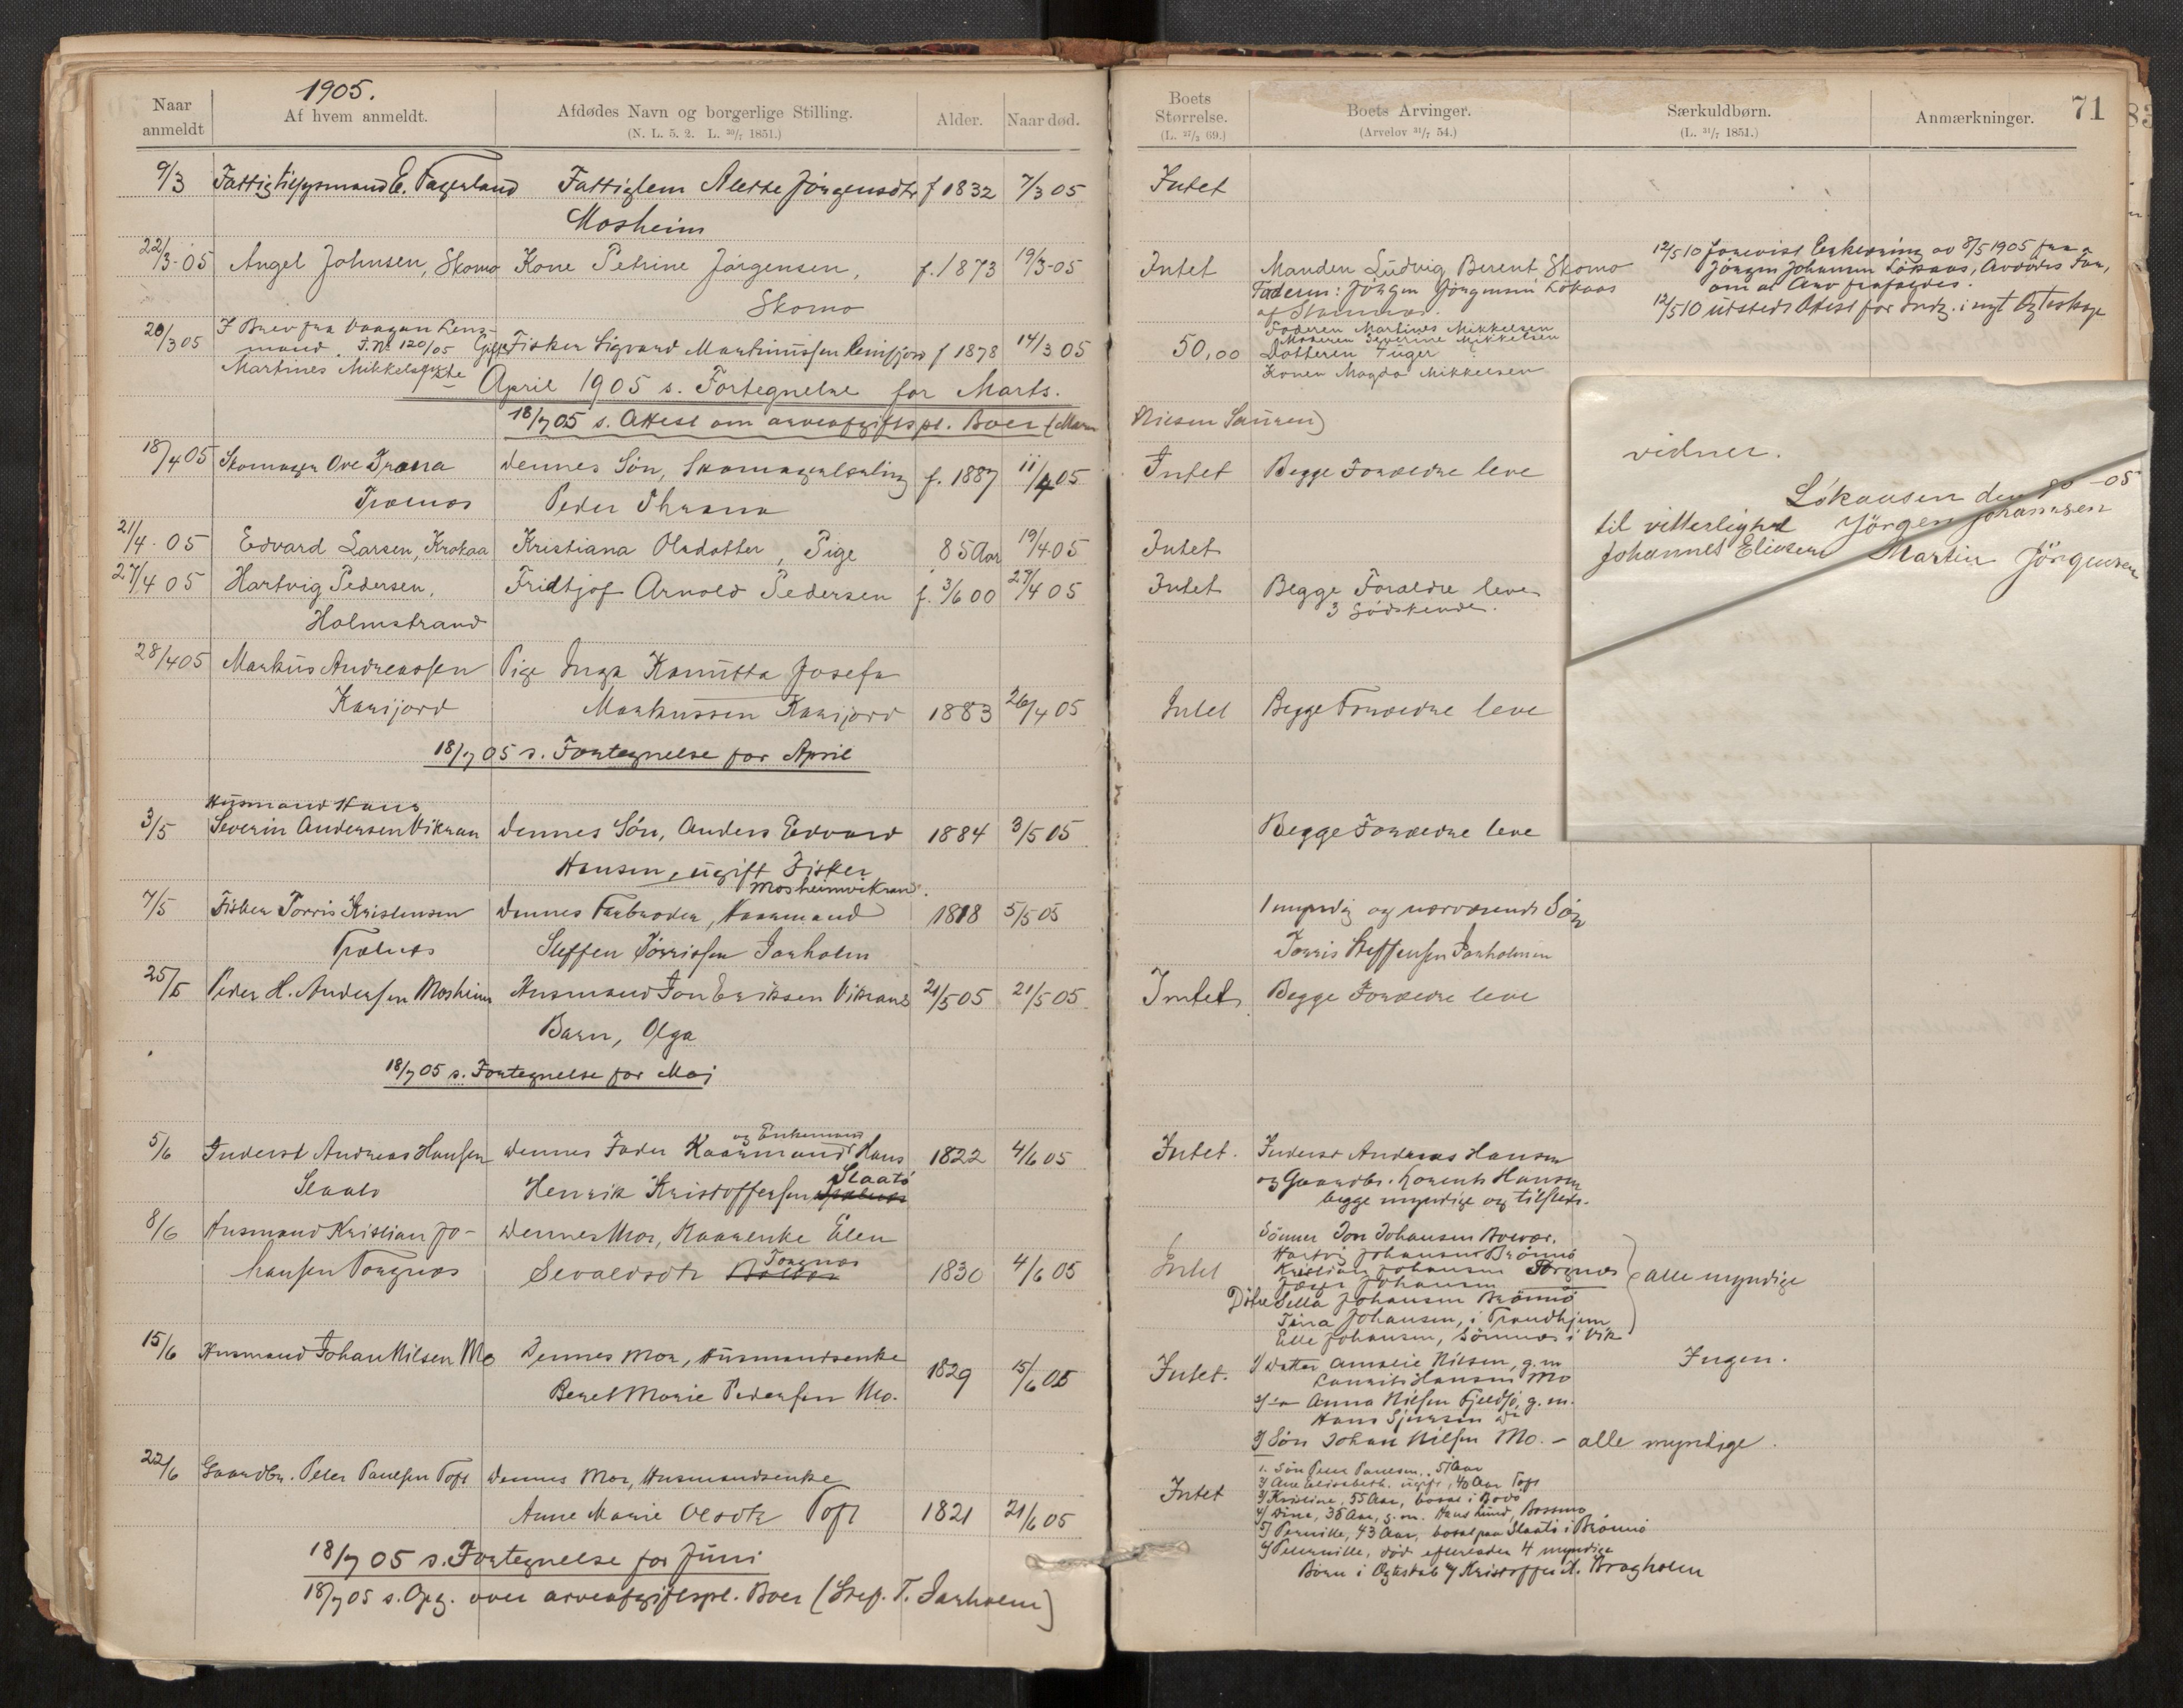 1905.
71
Naar anmeldt
Af hvem anmeldt.
Afdødes Navn og borgerlige Stilling.
(N. L. 5. 2. L. 30/7 1851.)
Alder.
Naar død.
Boets Størrelse.
(L. 27/3 69.)
Boets Arvinger.
(Arvelov 31/7 54.)
Særkuldbørn.
(L. 31/7 1851.)
Anmærkninger.
9/3 Fattigtilsynsmand E. Fagerland Fattiglem Alette Jörgensdtr f 1832 7/3 05 Intet
Mosheim
22/3-05 Angel Johnsen, Skomo Kone Petrine Jörgensen, f. 1873 19/3-05 Intet Manden Ludvig Berent Skomo
Skomo
Faderen: Jörgen
12/5 10 Forevist Erklæring av 8/5 1905 fra
Jörgen Johansen Lökaas, Avdödes Far,
om at Arv frafaldes.
12/5 10 utstedt Attest for indg. i nyt Ægteskap
20/3 05 I Brev fra Vaagan Lens-
mand J.N. 120/05 Gift Fisker Sigvard Martinussen Reinfjord f 1878 14/3 05 50,00
Martines Mikkelsen
Faderen Martines Mikkelsen
Moderen Severine Mikkelsen
Datteren 4 uger
Konen Magda Mikkelsen
April 1905 s. Fortegnelse for Marts.
18/7 05 s. Attest om arveafgiftspl. Boer (Maren
Nilsen Sauren)
18/4 05 Skomager Ove Trana dennes Sön, Skomagerlærling f. 1887 11/4 05 Intet Begge Forældre leve
Trælnæs Peder Thrana
21/4. 05 Edvard Larsen, Krokaa Kristiana Olsdatter, Pige 85 Aar 19/4 05 Intet
27/4 05 Hartvig Pedersen, Fridtjof Arnold Pedersen f. 3/6 00 27/4 05 Intet Begge Forældre leve
Holmstrand 3 Södskende.
28/4 05 Markus Andreassen Pige Inga Kanutta Josefa
Karijord Markussen Karijord 1883 26/4 05 Intet Begge Forældre leve
18/7 05 s. Fortegnelse for April
vidner.
Lökaasen den -05
til vitterlighed Jörgen Johannsen
Johannes Eliasen Martin Jörgensen
Husmand Hans
3/5 Severin Andersen Vikran dennes Sön, Anders Edvard 1884 3/5 05 Begge Forældre leve
Hansen, ugift Fisker
Mosheimvikran.
7/5 Fisker Torris Kristensen dennes Farbroder, Kaarmand 1818 5/5 05 1 myndig og nærværende Sön
Trælnes Steffen Törrissen Jarholm Torris Steffensen Jarholmen
25/5 Peder H. Andersen Mosheim Husmand Jon Eriksen Vikrans 21/5 05 21/5 05 Intet Begge Forældre leve
Barn, Olga
18/7 05 s. Fortegnelse for Mai
og Enkemand
5/6 Inderst Andreas Hansen dennes Fader Kaarmand Hans 1822 4/6 05 Intet. Inderst Andreas Hansen
Slaatö Henrik Kristoffersen Slaatö og Gaardbr. Lorents Hansen
begge myndige og tilstede.
8/6 Husmand Kristian Jo- dennes Mor, Kaarenke Elen
hansen Torgnes Sevaldsdtr Torgnæs 1830 4/6 05 Intet
Sönner Jon Johansen
Hartvig Johansen Brönnö
Kristian Johansen Torgnæs
Johansen
Dötre Sella Johansen Brönnö
Tina Johansen, i Trondhjem
Elle Johansen, Sömnæs i Vik
alle myndige
15/6 Husmand Johan Nilsen Mo Dennes Mor, Husmandsenke 1829 15/6 05 Intet.
Beret Marie Pedersen Mo.
1) datter Amalie Nilsen, g. m.
Laurits Hansen Mo
2) Anna Nilsen Fjeldsö, g. m.
Hans Sjursen
3) Sön Johan Nilsen Mo. - alle myndige.
Ingen.
22/6 Gaardbr. Peter Paulsen Toft dennes Mor, Husmandsenke
Anne Marie Olsdtr Toft 1821 21/6 05 Intet
1. Sön Peter Paulsen, 51 Aar
2) Ane Elisabeth, ugift, 40 Aar Toft
3) Kristine, 55 Aar, bosat i Bodö
4) Dina, 35 Aar, g. m. Hans Lund,
5) Pernille, 43 Aar, bosat paa Slaatö i Brönnö
Petternille, död efterlader 4 myndige
Börn i Ægteskab m/ Kristoffer A. Bragholm
18/7 05 s. Fortegnelse for Juni
18/7 05 s. Opg. over arveafgiftspl. Boer (Stef. T. Jarholm)